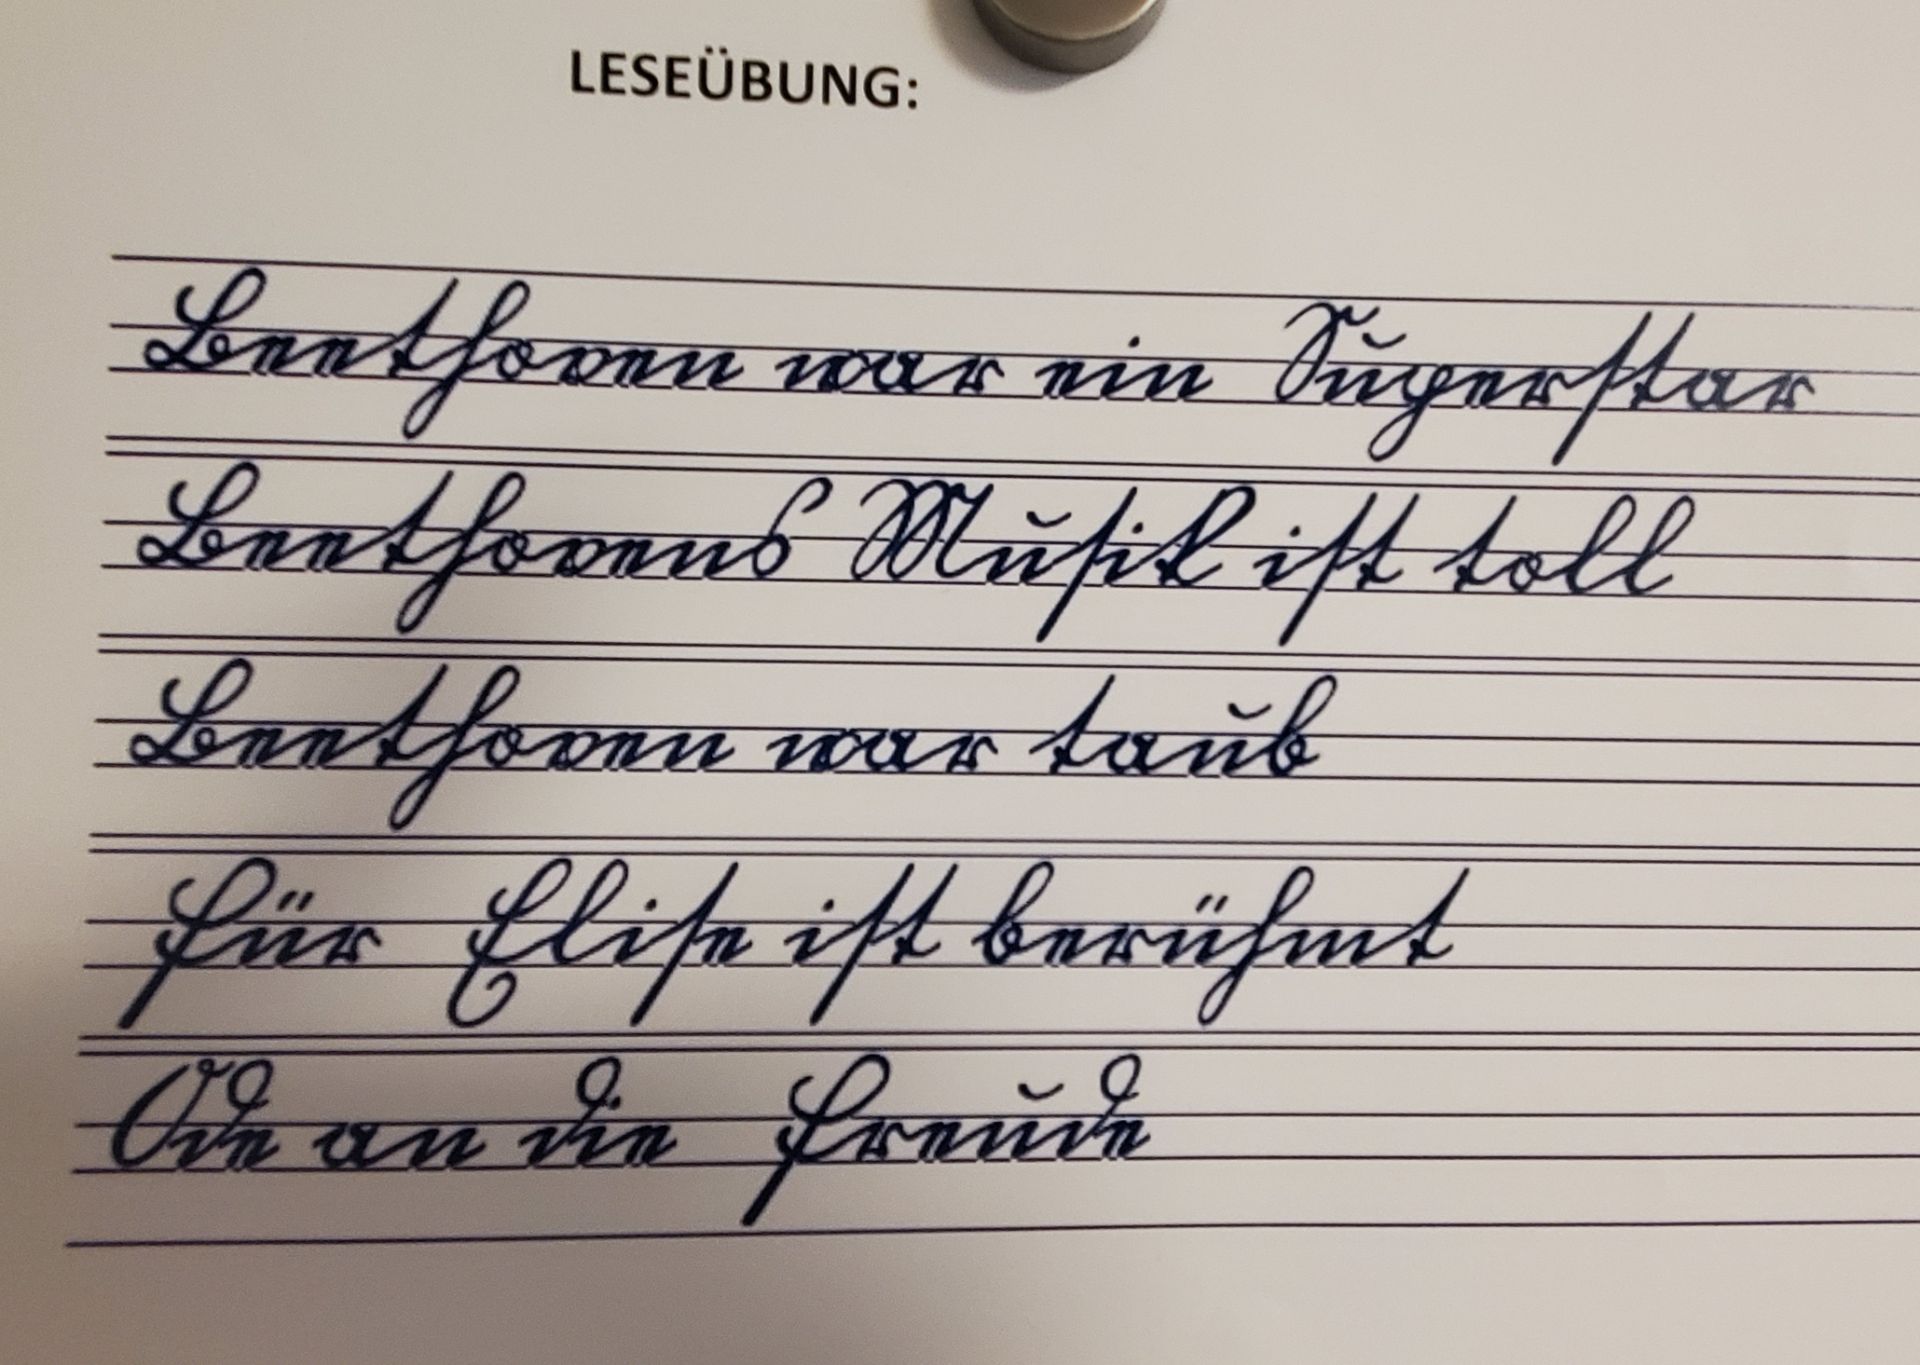 LESEÜBUNG:
Beethoven war ein Superstar
Beethovens Musik ist toll
Beethoven war taub
Für Elise ist berühmt
Ode an die Freude